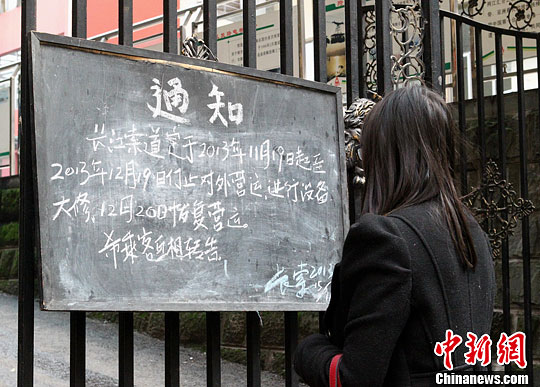 通知
长江索道定于2013年11月19日起至
2013年12月19日停止对外营运,进行设备
大修,12月20日恢复营运。
希乘客互相转告。
长索2013
中新网
Chinanews.com